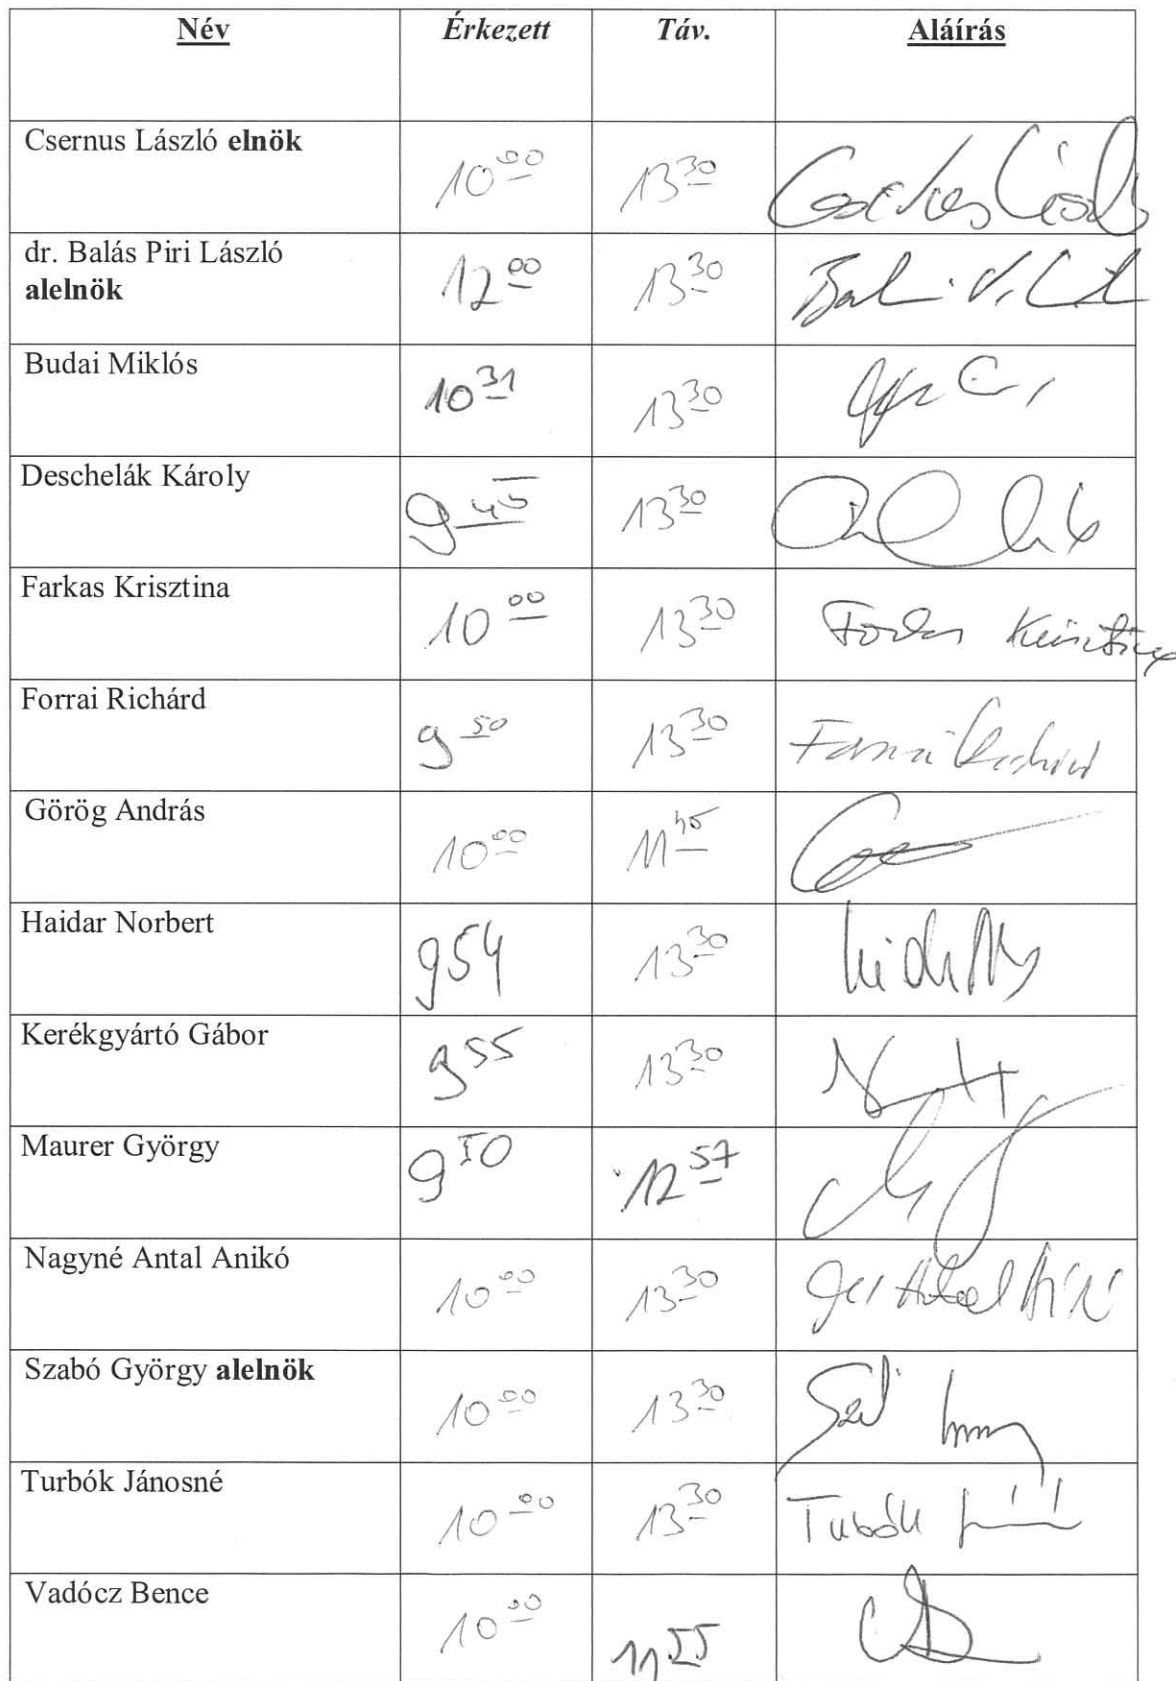 Név Érkezett Táv. Aláírás
Csernus László elnök 10 00 13 30
dr. Balás Piri László
alelnök 12 00 13 30
Budai Miklós 10 31 13 30
Deschelák Károly 9 45 13 30
Farkas Krisztina 10 00 13 30 Farkas Krisztina
Forrai Richárd 9 50 13 30 Forrai Richárd
Görög András 10 00 11 45
Haidar Norbert 9 54 13 30
Kerékgyártó Gábor 9 55 13 30
Maurer György 9 50 12 57
Nagyné Antal Anikó 10 00 13 30
Szabó György alelnök 10 00 13 30
Turbók Jánosné 10 00 13 30
Vadócz Bence 10 00 11 55